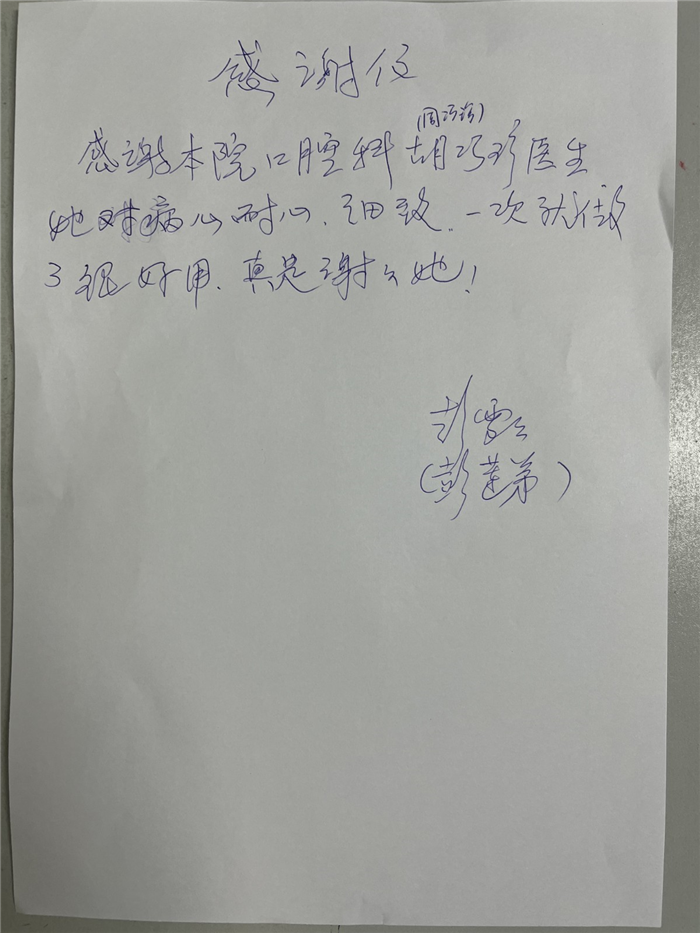 感谢信
(周巧珍)
感谢本院口腔科胡巧珍医生
她对病人耐心、细致、一次就做
了很好用、真是谢谢她!
彭
(彭莲弟)